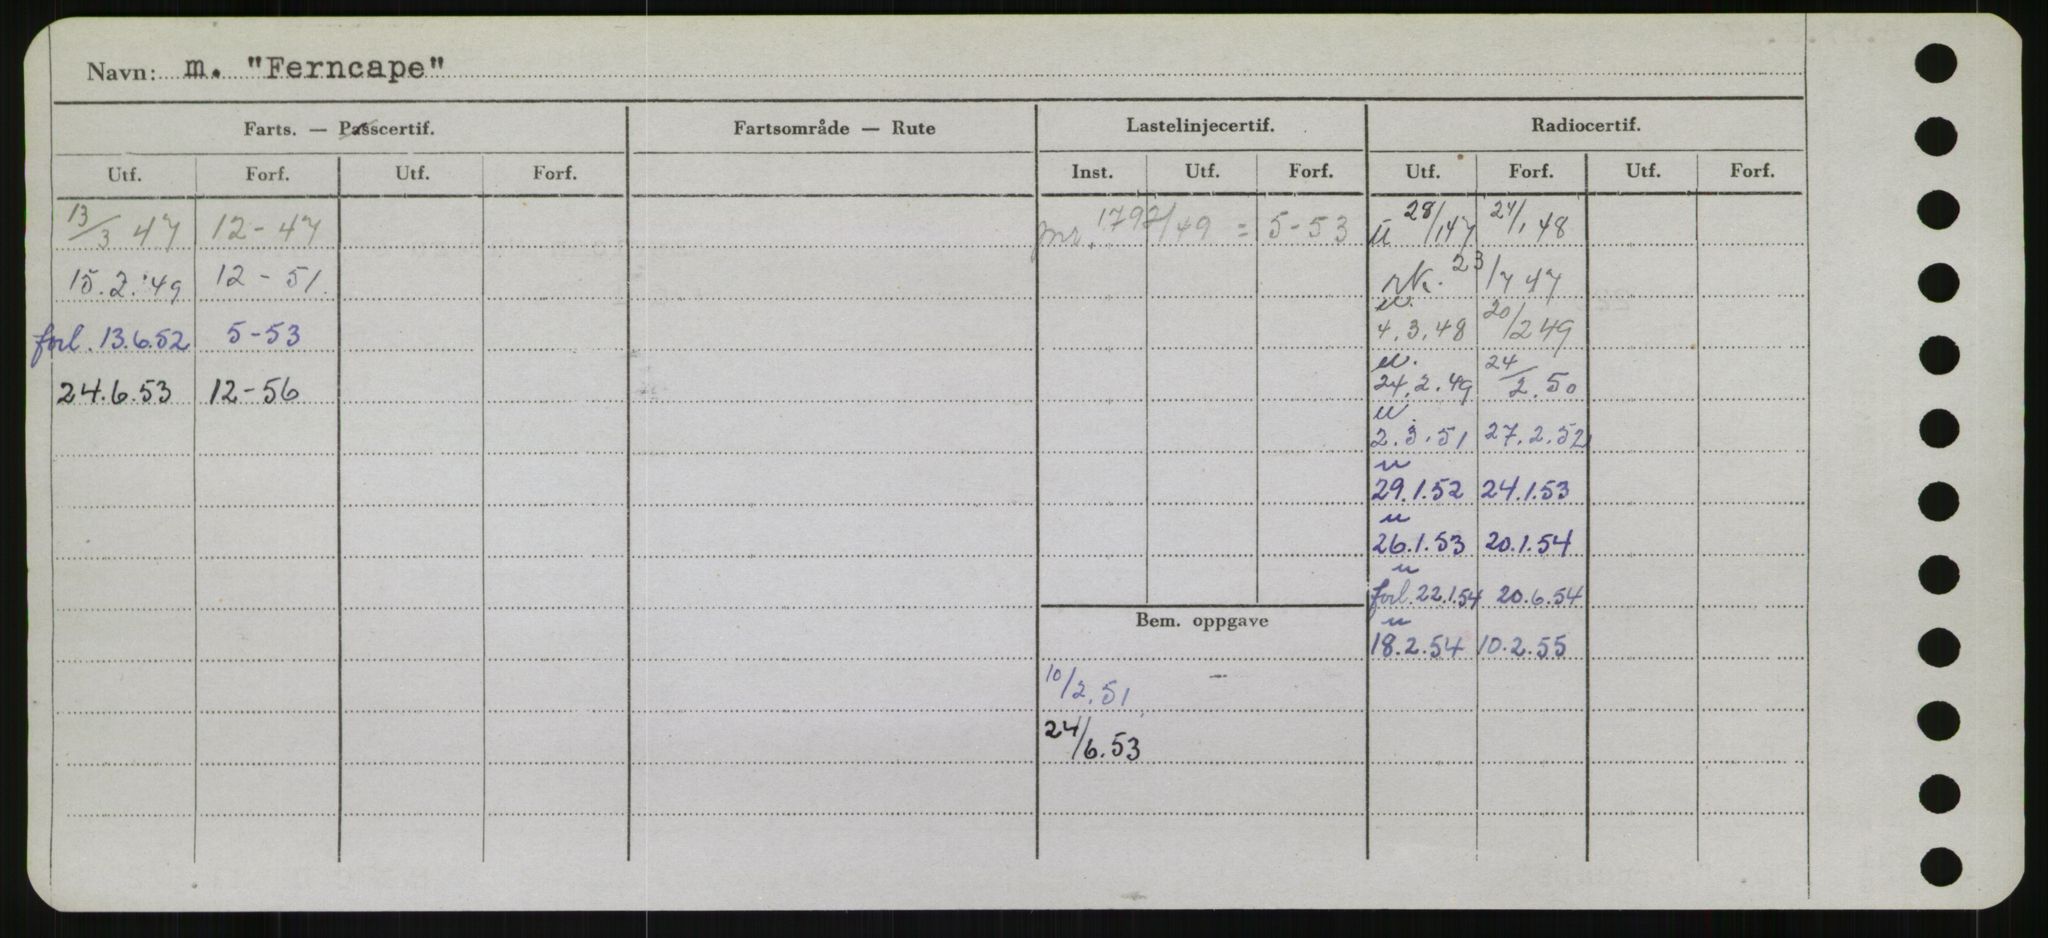 Navn: m. "Ferncape"
Farts. — Passcertif. Fartsområde — Rute Lastelinjecertif. Radiocertif.
Utf. Forf. Utf. Forf. Inst. Utf. Forf. Utf. Forf. Utf. Forf.
13/3 47 12-47 nr. 1792/49 = 5-53 u 28/1 47 24/1 48
15.2.'49 12-51. rk. 23/7 47
u.
4.3.48 20/2 49
forl. 13.6.52 5-53
u.
24.2.49 24/2.50
24.6.53 12-56
u.
2.3.51 27.2.52
u
29.1.52 24.1.53
u
26.1.53 20.1.54
u
forl. 22.1.54 20.6.54
Bem. oppgave
u
18.2.54 10.2.55
10/2.51
24/6.53